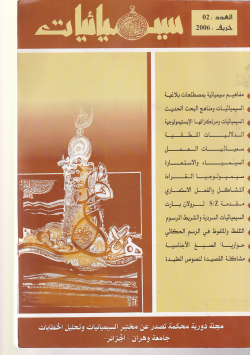 العدد : 02
خريف . 2006
سيميائيات
مفاهيم سيميائية بمصطلحات بلاغية
السيميائيات ومناهج البحث الحديث
السيميائيات ومرتكزاتها الإبستيمولوجية
الدلائليات المنطقية
سيميائيات العمل
السيمياء والاستعارة
سيميولوجيا القراءة
التشاكل والفعل الاستعاري
مقدمة S/Z لرولان بارت
السيميائيات السردية والشريط المرسوم
التلفظ والملفوظ في الرسم الحكائي
حوارية الصيغ الأجناسية
مشاكلة القصيدة للنصوص العقيدة
مجلة دورية محكمة تصدر عن مختبر السيميائيات وتحليل الخطابات
جامعة وهران - الجزائر -